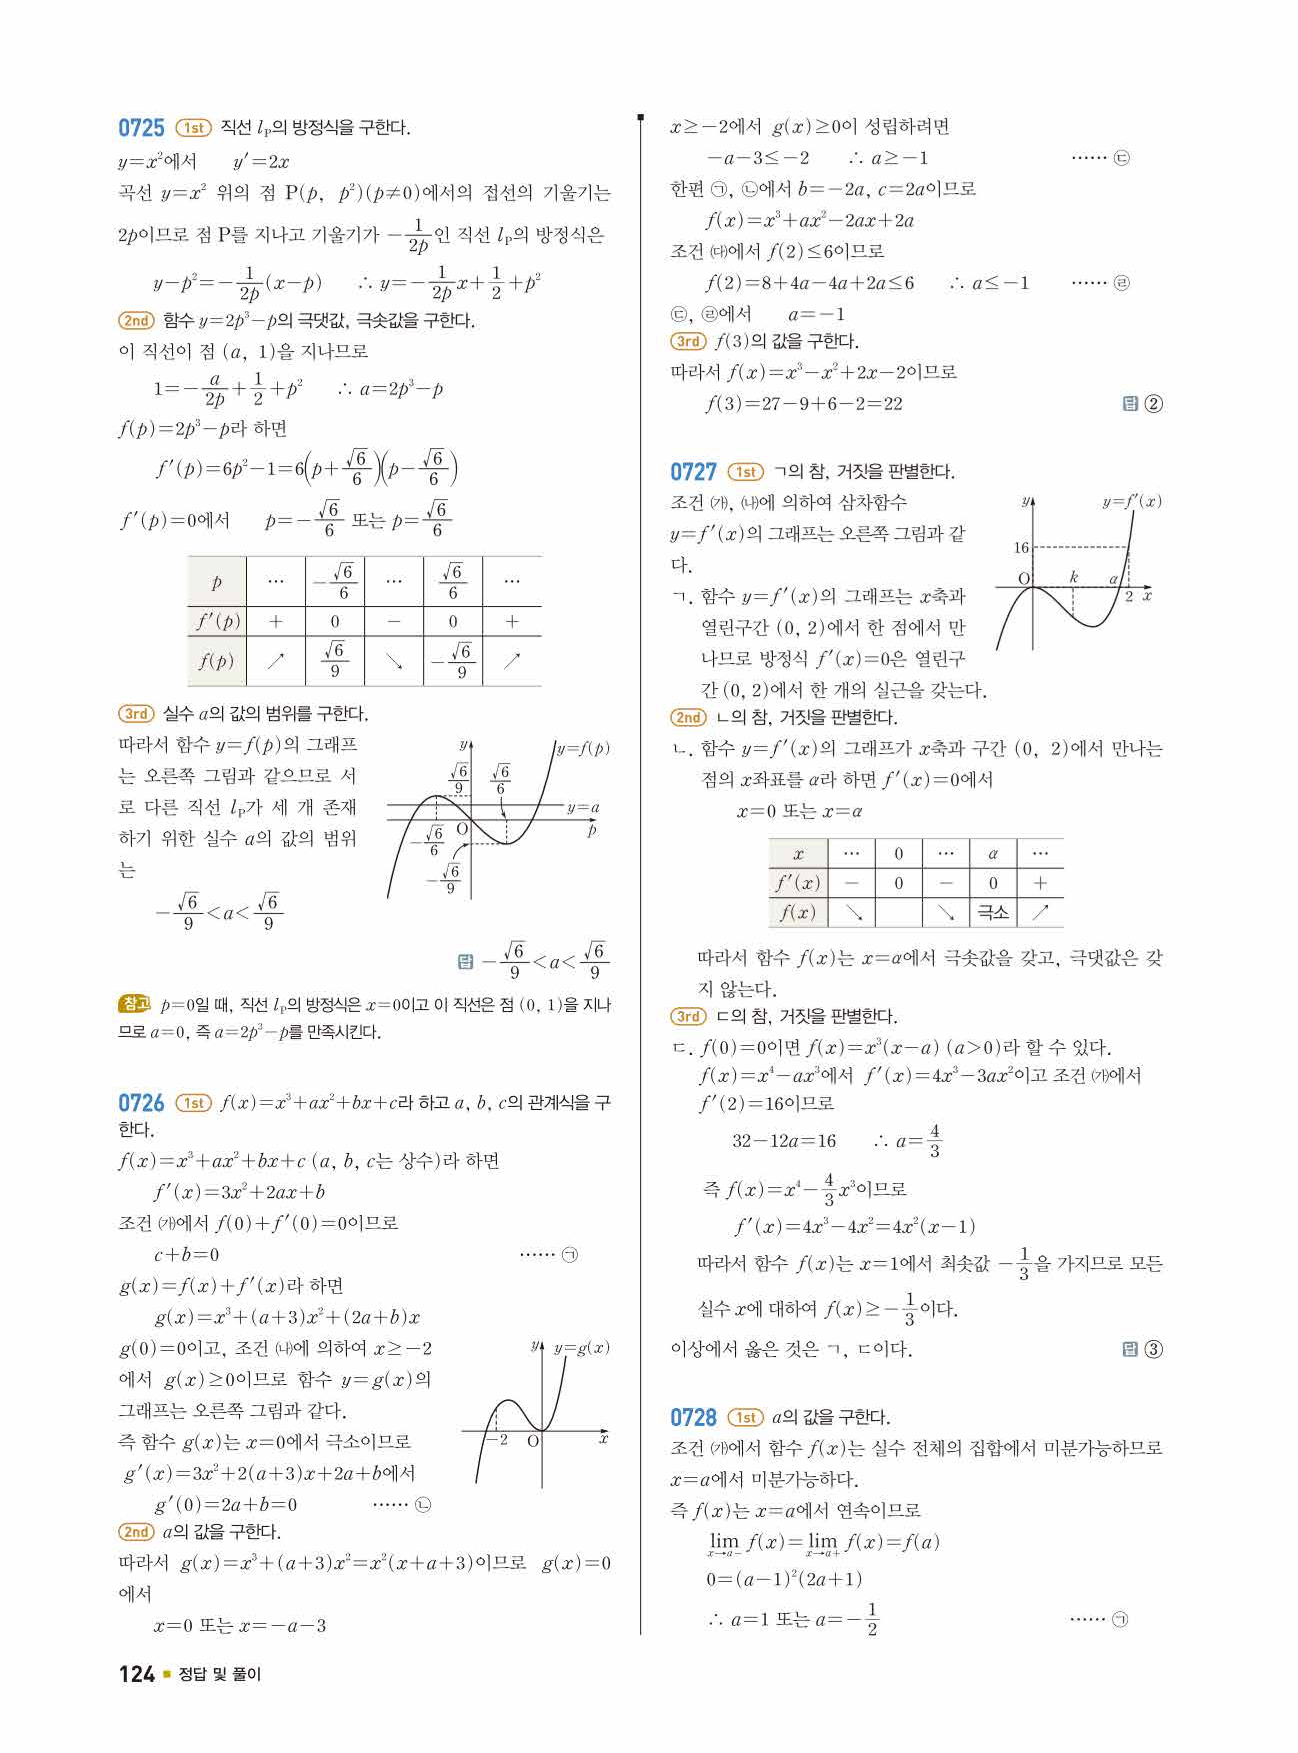 0725 1st 직선 l_P의 방정식을 구한다.
y=x²에서 y′=2x
곡선 y=x² 위의 점 P(p, p²)(p≠0)에서의 접선의 기울기는
2p이므로 점 P를 지나고 기울기가 -1/2p인 직선 l_P의 방정식은
y-p²=-1/2p(x-p) ∴ y=-1/2p x+1/2+p²
2nd 함수 y=2p³-p의 극댓값, 극솟값을 구한다.
이 직선이 점 (a, 1)을 지나므로
1=-a/2p+1/2+p² ∴ a=2p³-p
f(p)=2p³-p라 하면
f′(p)=6p²-1=6(p+√6/6)(p-√6/6)
f′(p)=0에서 p=-√6/6 또는 p=√6/6
p … -√6/6 … √6/6 …
f′(p) + 0 - 0 +
f(p) ↗ √6/9 ↘ -√6/9 ↗
3rd 실수 a의 값의 범위를 구한다.
따라서 함수 y=f(p)의 그래프
는 오른쪽 그림과 같으므로 서
로 다른 직선 l_P가 세 개 존재
하기 위한 실수 a의 값의 범위
는
-√6/9<a<√6/9
y y=f(p)
√6/9 √6/6
y=a
-√6/6 O p
-√6/9
답 -√6/9<a<√6/9
참고 p=0일 때, 직선 l_P의 방정식은 x=0이고 이 직선은 점 (0, 1)을 지나
므로 a=0, 즉 a=2p³-p를 만족시킨다.
0726 1st f(x)=x³+ax²+bx+c라 하고 a, b, c의 관계식을 구
한다.
f(x)=x³+ax²+bx+c (a, b, c는 상수)라 하면
f′(x)=3x²+2ax+b
조건 ㈎에서 f(0)+f′(0)=0이므로
c+b=0 …… ㉠
g(x)=f(x)+f′(x)라 하면
g(x)=x³+(a+3)x²+(2a+b)x
g(0)=0이고, 조건 ㈏에 의하여 x≥-2
에서 g(x)≥0이므로 함수 y=g(x)의
그래프는 오른쪽 그림과 같다.
즉 함수 g(x)는 x=0에서 극소이므로
g′(x)=3x²+2(a+3)x+2a+b에서
g′(0)=2a+b=0 …… ㉡
y y=g(x)
-2 O x
2nd a의 값을 구한다.
따라서 g(x)=x³+(a+3)x²=x²(x+a+3)이므로 g(x)=0
에서
x=0 또는 x=-a-3
124 정답 및 풀이
x≥-2에서 g(x)≥0이 성립하려면
-a-3≤-2 ∴ a≥-1 …… ㉢
한편 ㉠, ㉡에서 b=-2a, c=2a이므로
f(x)=x³+ax²-2ax+2a
조건 ㈐에서 f(2)≤6이므로
f(2)=8+4a-4a+2a≤6 ∴ a≤-1 …… ㉣
㉢, ㉣에서 a=-1
3rd f(3)의 값을 구한다.
따라서 f(x)=x³-x²+2x-2이므로
f(3)=27-9+6-2=22 답 ②
0727 1st ㄱ의 참, 거짓을 판별한다.
조건 ㈎, ㈏에 의하여 삼차함수
y=f′(x)의 그래프는 오른쪽 그림과 같
다.
ㄱ. 함수 y=f′(x)의 그래프는 x축과
열린구간 (0, 2)에서 한 점에서 만
나므로 방정식 f′(x)=0은 열린구
간 (0, 2)에서 한 개의 실근을 갖는다.
y y=f′(x)
16
O k α
2 x
2nd ㄴ의 참, 거짓을 판별한다.
ㄴ. 함수 y=f′(x)의 그래프가 x축과 구간 (0, 2)에서 만나는
점의 x좌표를 α라 하면 f′(x)=0에서
x=0 또는 x=α
x … 0 … α …
f′(x) - 0 - 0 +
f(x) ↘ ↘ 극소 ↗
따라서 함수 f(x)는 x=α에서 극솟값을 갖고, 극댓값은 갖
지 않는다.
3rd ㄷ의 참, 거짓을 판별한다.
ㄷ. f(0)=0이면 f(x)=x³(x-a) (a>0)라 할 수 있다.
f(x)=x⁴-ax³에서 f′(x)=4x³-3ax²이고 조건 ㈎에서
f′(2)=16이므로
32-12a=16 ∴ a=4/3
즉 f(x)=x⁴-4/3x³이므로
f′(x)=4x³-4x²=4x²(x-1)
따라서 함수 f(x)는 x=1에서 최솟값 -1/3을 가지므로 모든
실수 x에 대하여 f(x)≥-1/3이다.
이상에서 옳은 것은 ㄱ, ㄷ이다. 답 ③
0728 1st a의 값을 구한다.
조건 ㈎에서 함수 f(x)는 실수 전체의 집합에서 미분가능하므로
x=a에서 미분가능하다.
즉 f(x)는 x=a에서 연속이므로
lim x→a- f(x)=lim x→a+ f(x)=f(a)
0=(a-1)²(2a+1)
∴ a=1 또는 a=-1/2 …… ㉠